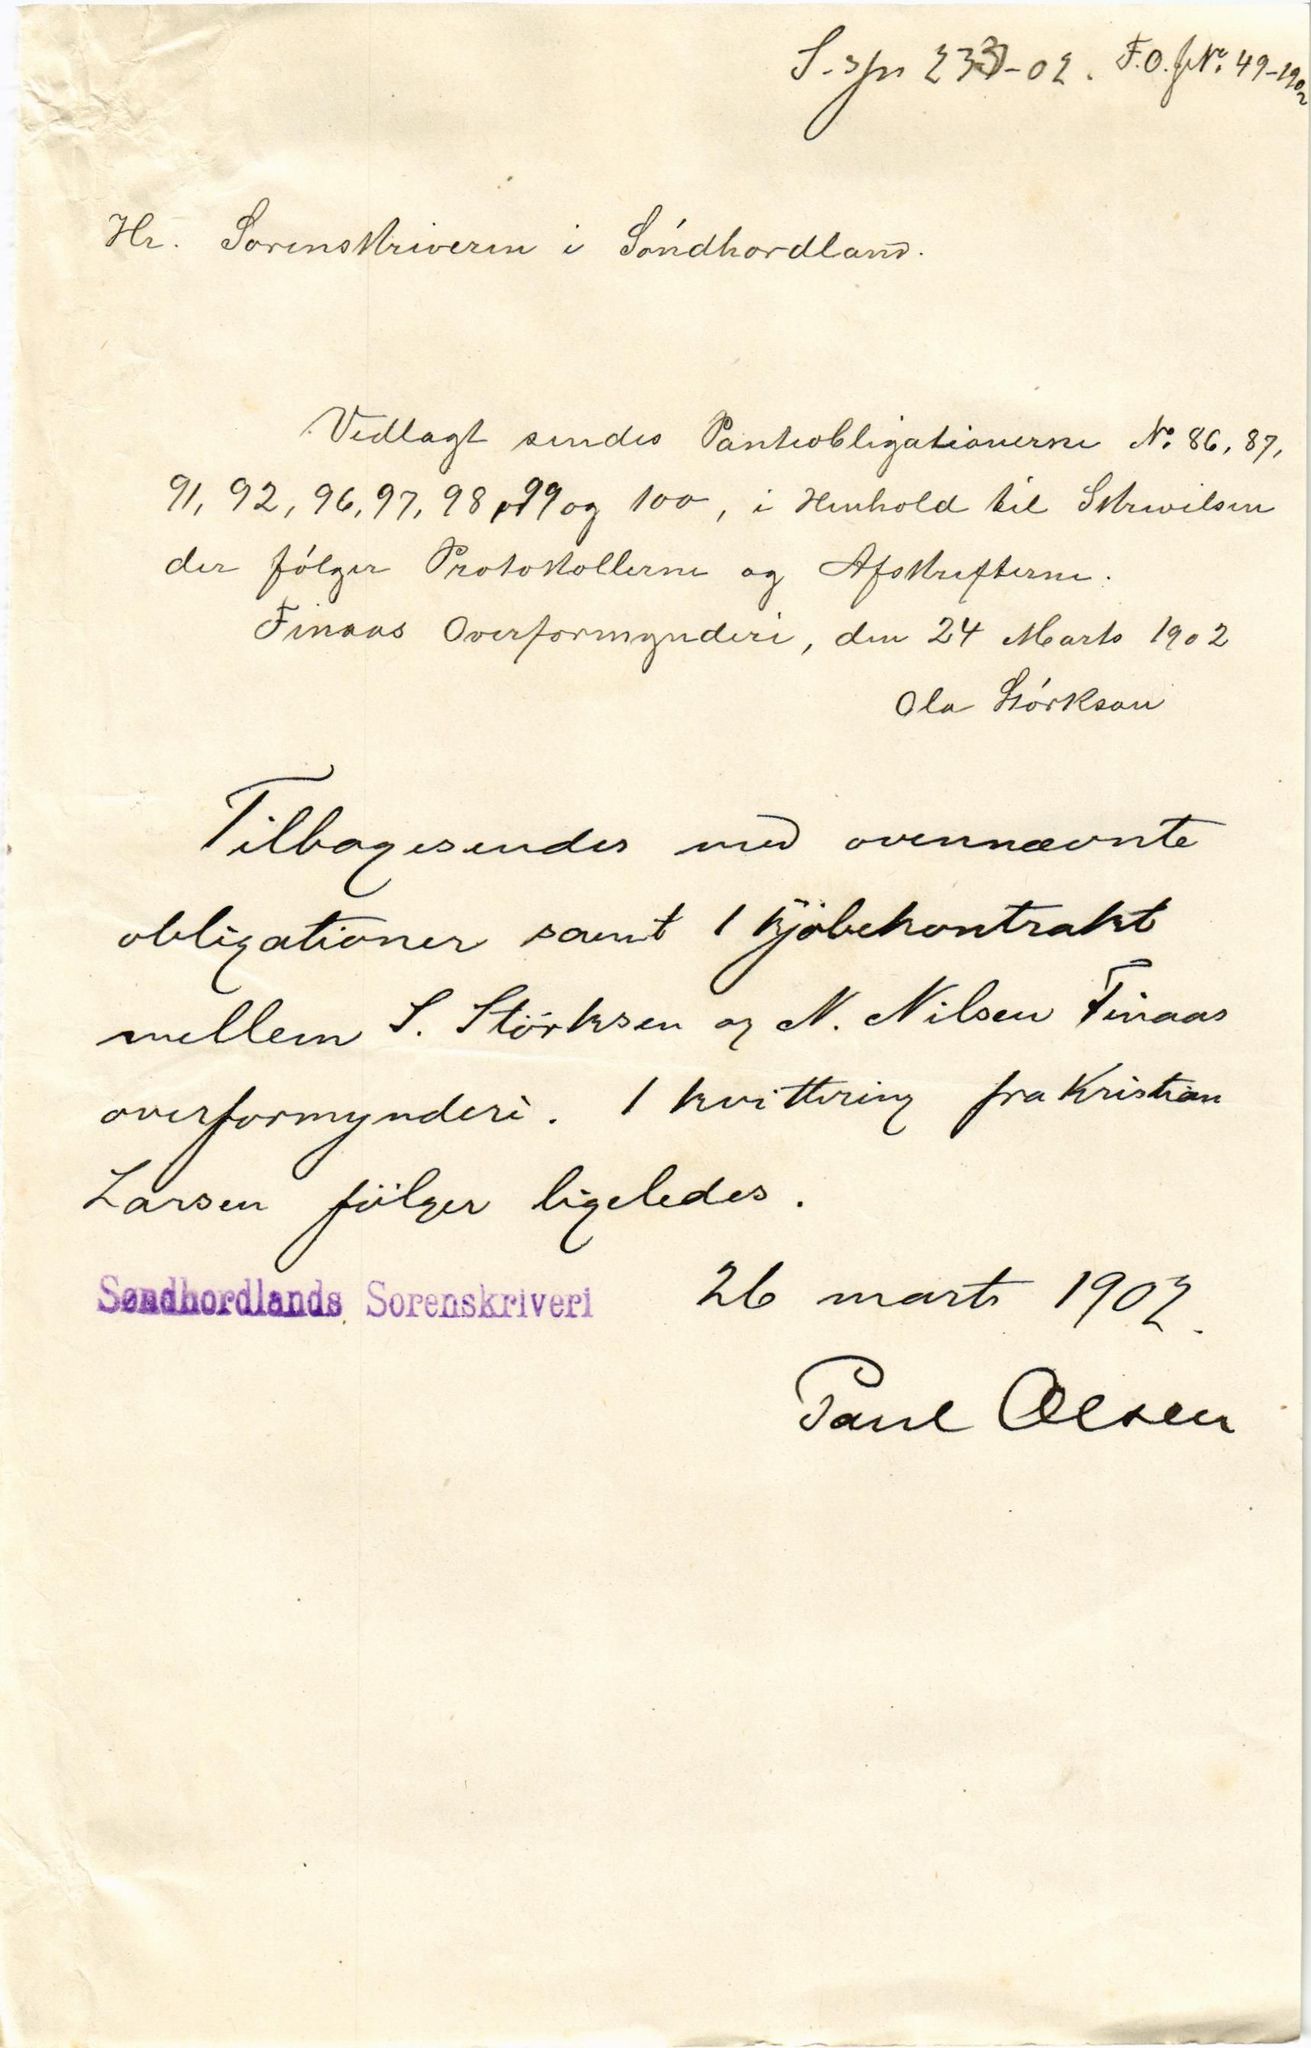 S. jn 233-02. F.O. J№. 49-1902
Hr. Sorenskriveren i Söndhordland.
Vedlagt sendes Panteobligationerne №. 86, 87,
91, 92, 96, 97, 98, 99 og 100, i Henhold til Skrivelsen
der fölger Protokollerne og Afskrifterne.
Finaas Overformynderi, den 24 Marts 1902
Ola Störksen
Tilbagesendes med ovennævnte
obligationer samt 1 kjöbekontrakt
mellem S. Störksen og N. Nilsen Finaas
overformynderi. 1 kvittering fra Kristian
Larsen fölger ligeledes.
Søndhordlands Sorenskriveri 26 marts 1902.
Paul Olsen